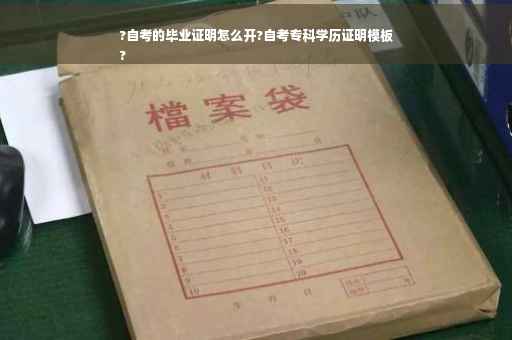 ?自考的毕业证明怎么开?自考专科学历证明模板
?
檔案袋
材料目次
1 11
2 12
3 13
4 14
5 15
6 16
7 17
8 18
9 19
10 20
年 月 日